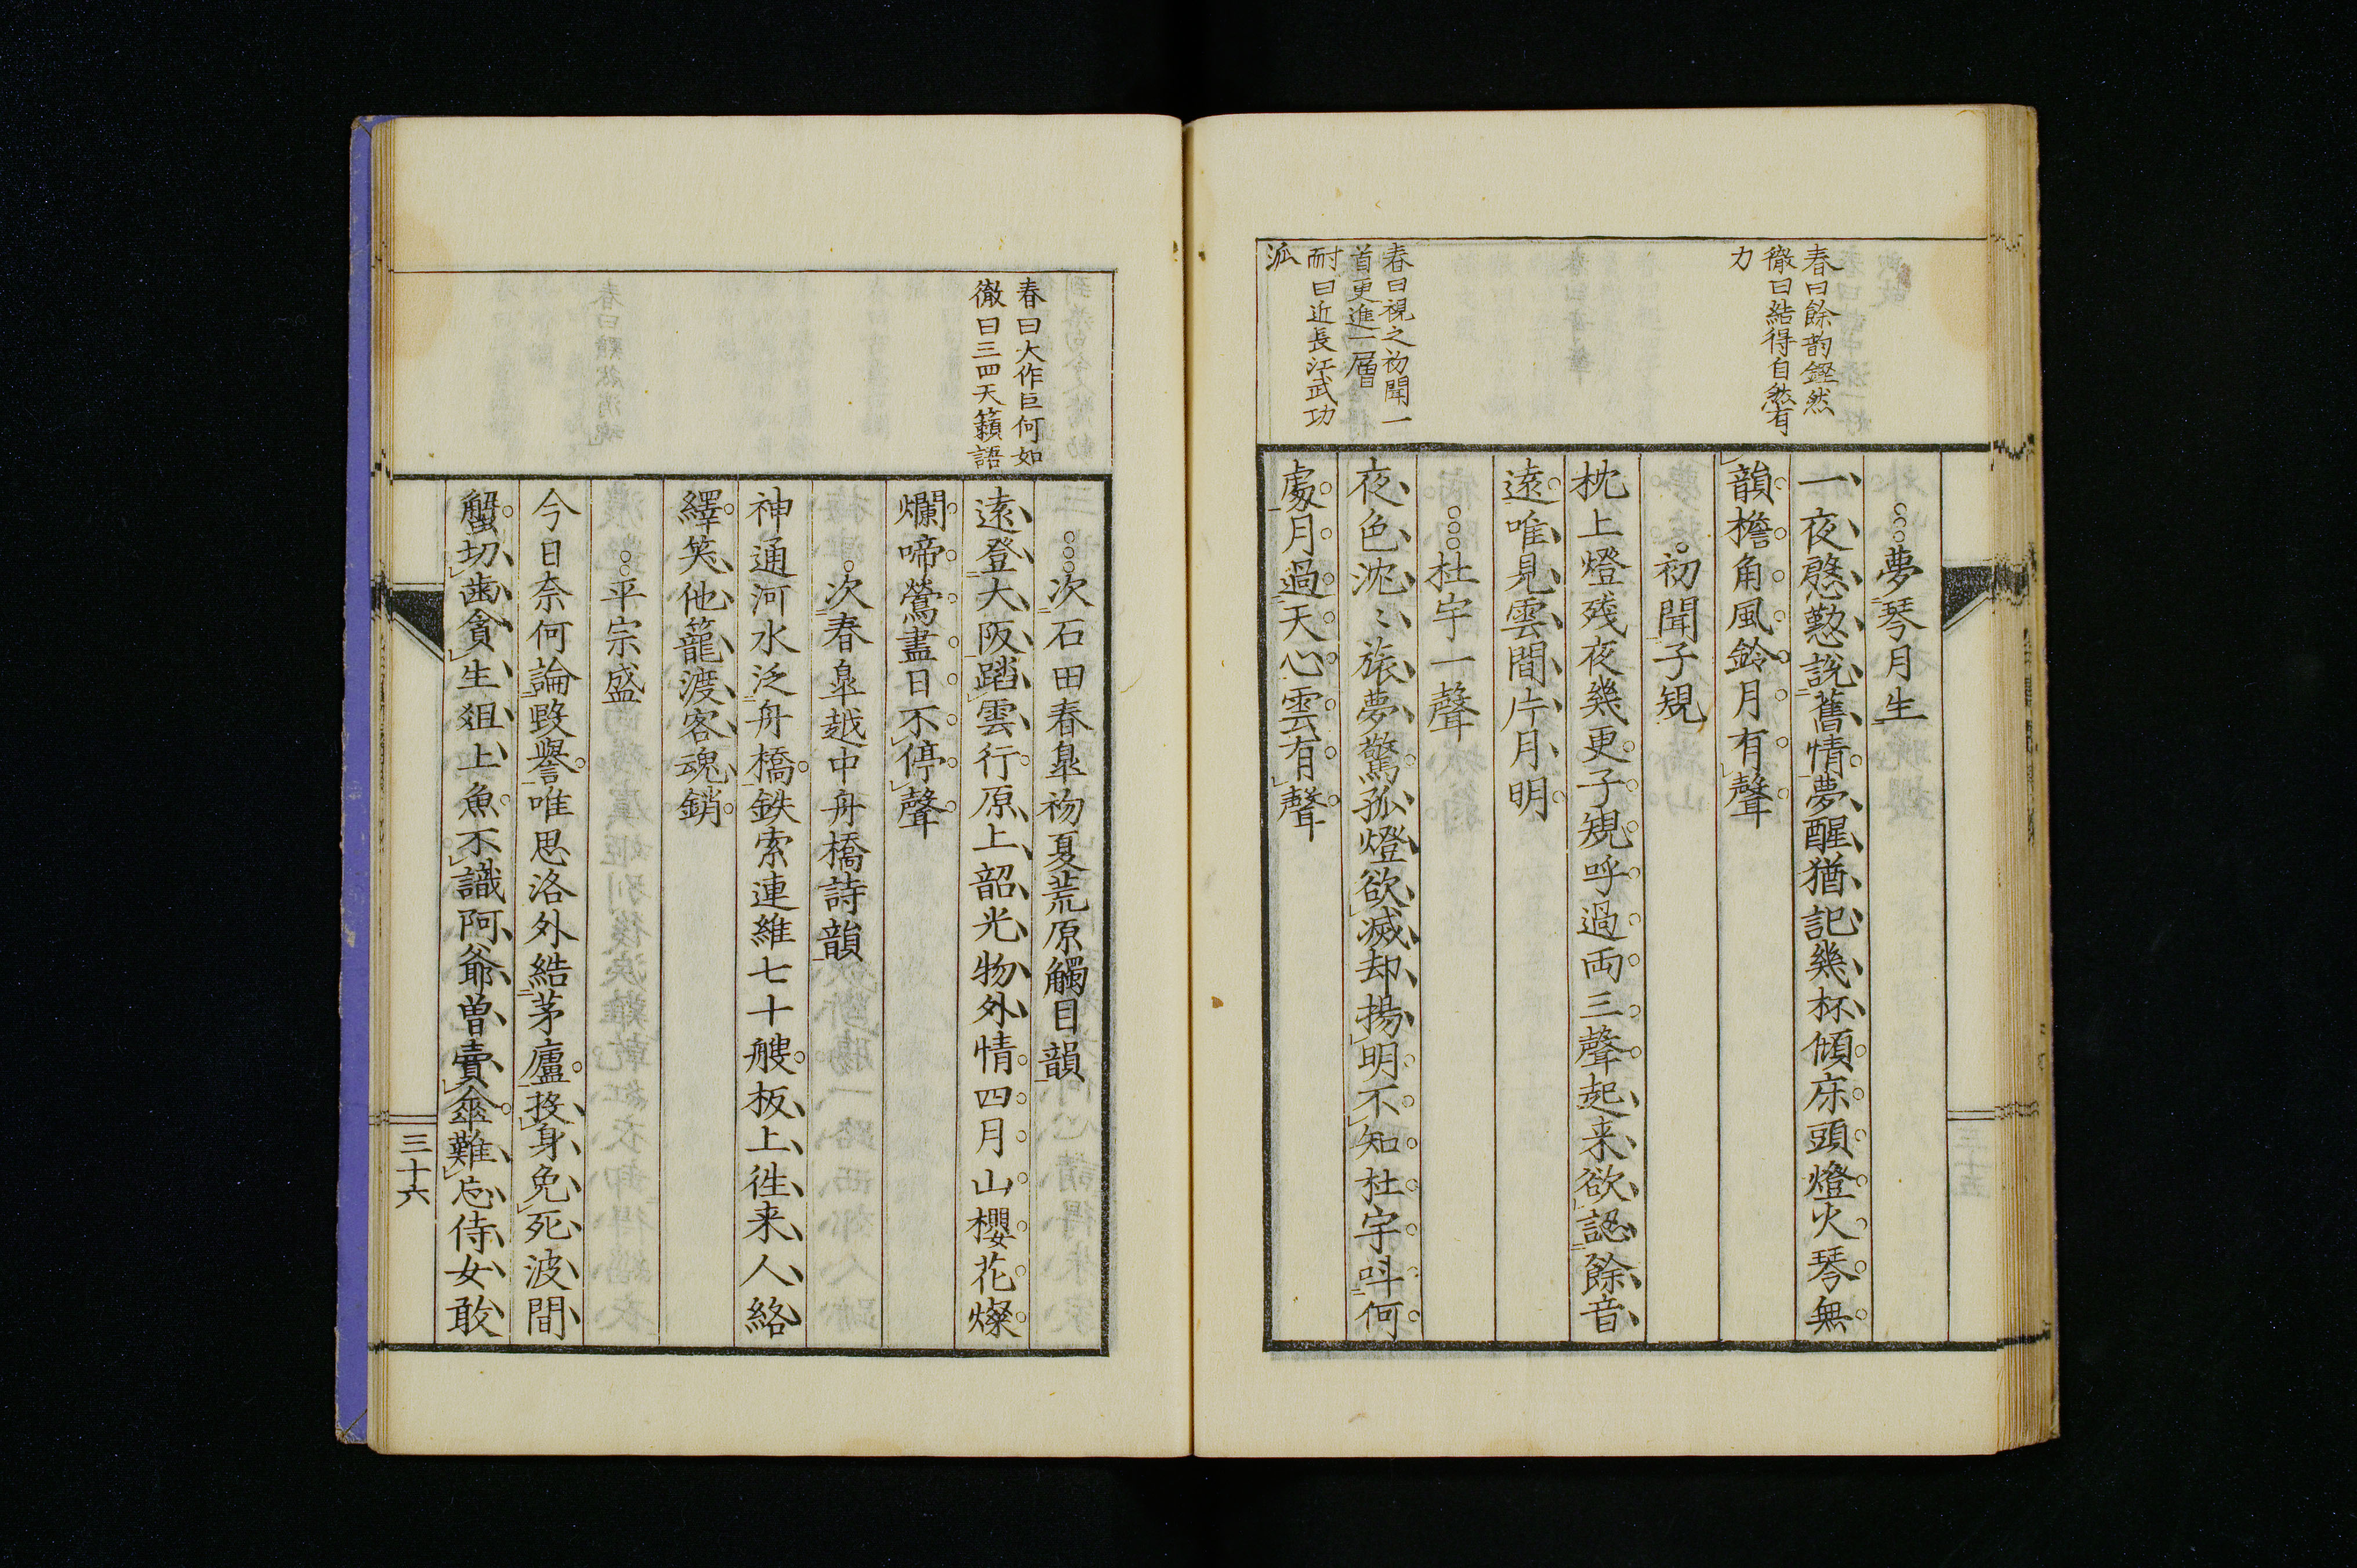 春曰餘韵鏗然
徹曰結得自然有
力
春曰視之初聞一
首更進一層
耐曰近長江武功
派
夢琴月生
一夜慇懃說舊情夢醒猶記幾杯傾床頭燈火琴無
韻檐角風鈴月有聲
初聞子規
枕上燈残夜幾更子規呼過両三聲起来欲認餘音
遠唯見雲間片月明
杜宇一聲
夜色沈〻旅夢驚孤燈欲滅却揚明不知杜宇呌何
處月過天心雲有聲
春曰大作巨何如
徹曰三四天籟語
次石田春皐初夏荒原觸目韻
遠登大阪蹈雲行原上韶光物外情四月山櫻花燦
爛啼鶯盡日不停聲
次春皐越中舟橋詩韻
神通河水泛舟橋鉄索連維七十艘板上徃来人絡
繹笑他籠渡客魂銷
平宗盛
今日奈何論毀譽唯思洛外結茅廬投身免死波間
蟹切歯貪生俎上魚不識阿爺曽賣傘難忘侍女敢
三十六